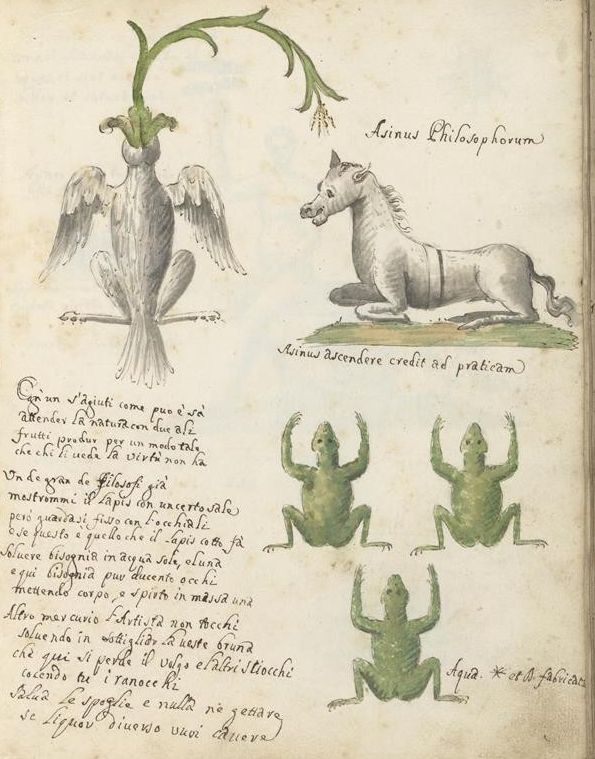 Asinus Philosophorum
Asinus ascendere credit ad praticam
Ogn'un s'agiuti come puo è sà
attender la natura con due ali
frutti produr per un modo tale
che chi li veda la virtù non ha
Un de gran de Filosofi già
mostrommi il Lapis con un certo sale
però guardasi fisso con l'occhiali
se questo e quello che il Lapis cotto fà
soluere bisognia in acqua sole, e luna
e qui bisognia pur ducento occhi
mettendo corpo, e spirto in massa una
Altro mercurio l'Artista non tocchi
soluendo in sottigliar la ueste bruna
che qui si perde il volgo e l'altri stiocchi
cocendo tu i ranocchi
salua le spoglie e nulla ne gettare
se liquor diuerso vuoi cauere
Aqua. et fabricata